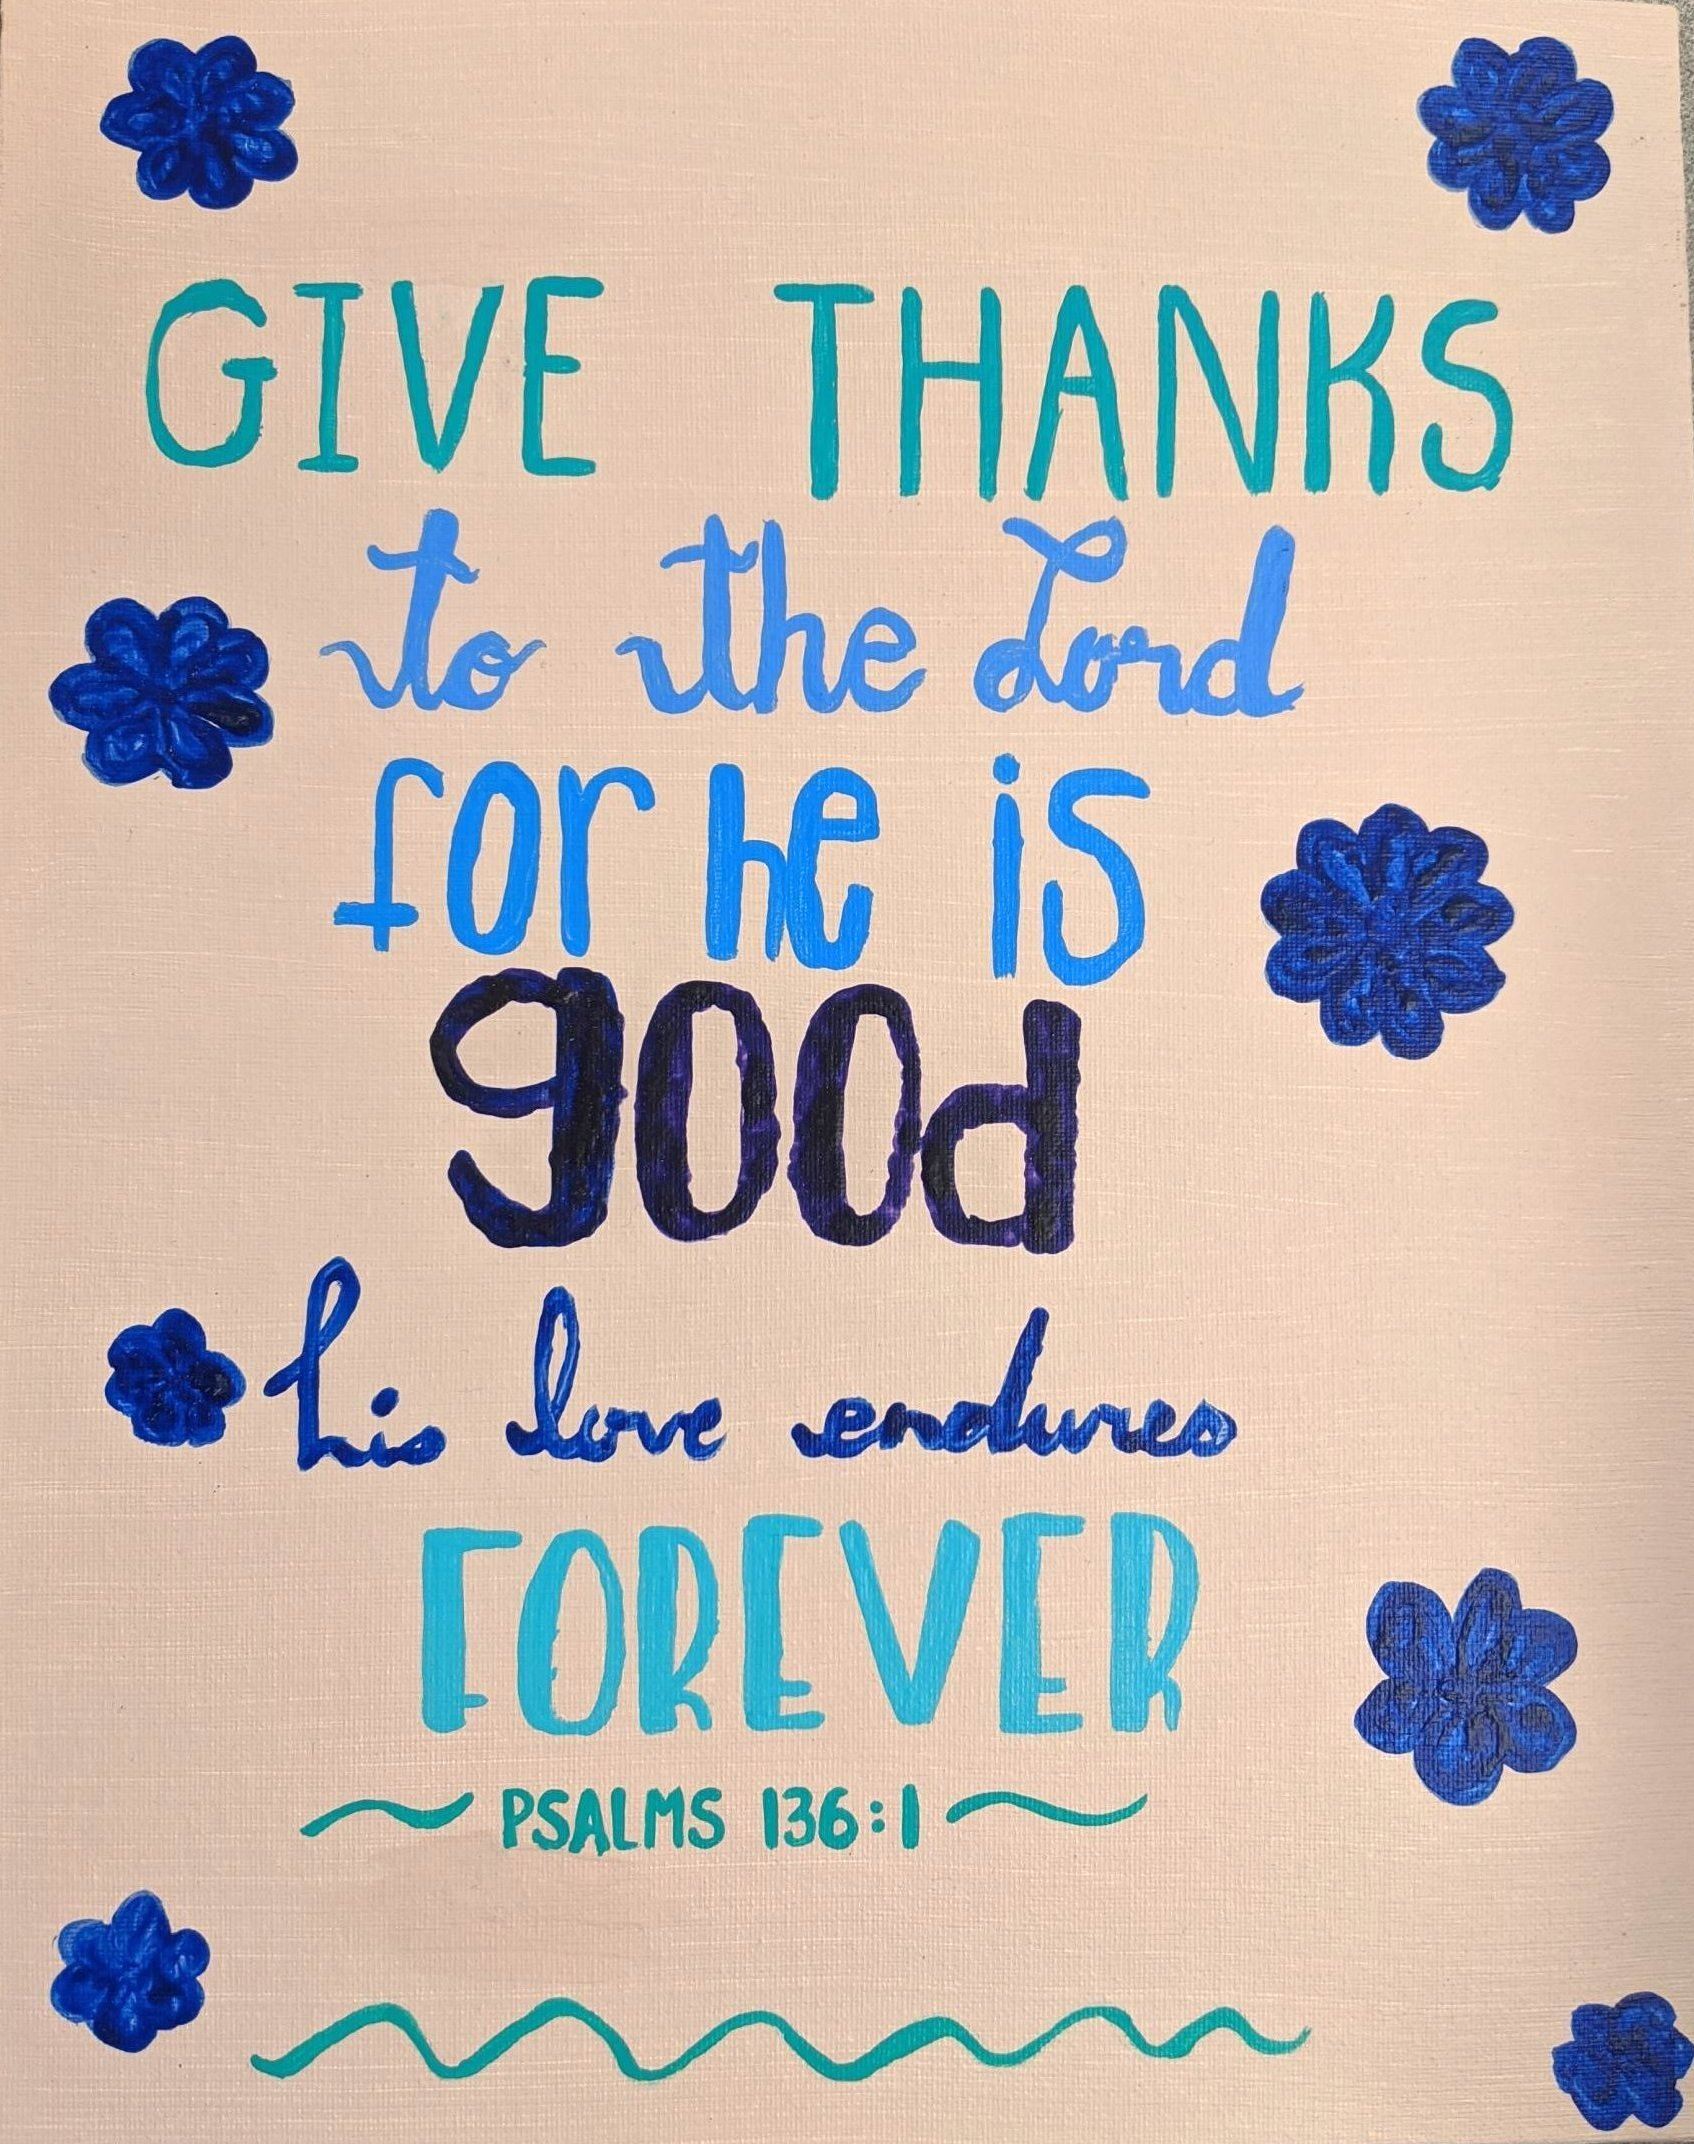 GIVE THANKS
to the Lord
for he is
good
his love endures
FOREVER
~ PSALMS 136:1 ~